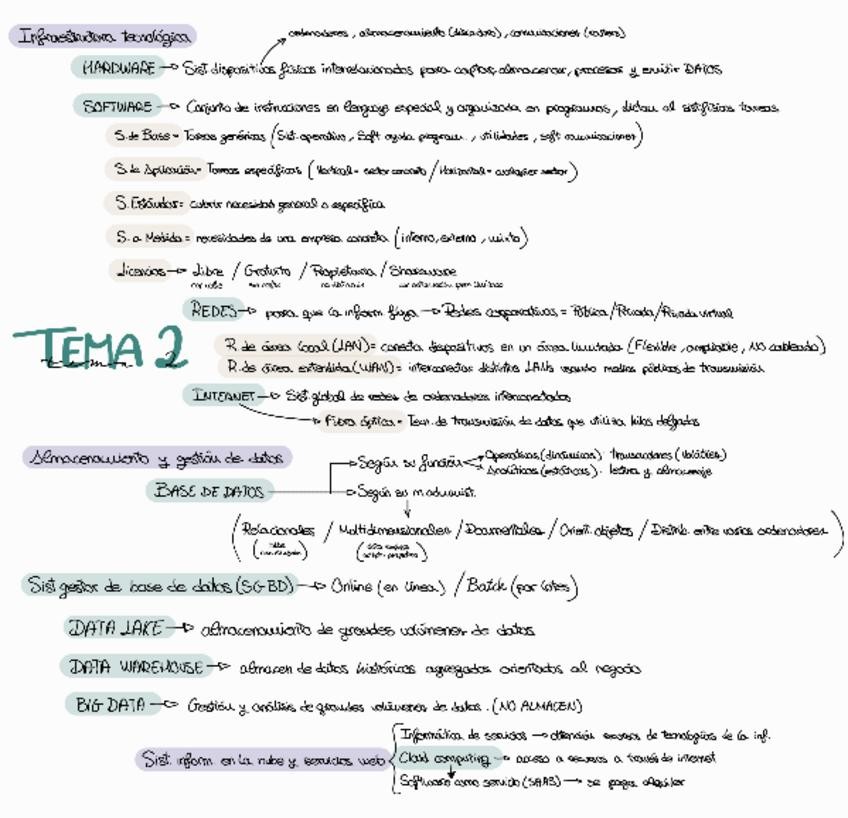 ordenadores, almacenamiento (discoduro), comunicaciones (routers)
Infraestructura tecnológica
HARDWARE → Sist dispositivos físicos interrelacionados para captar, almacenar, procesar y emitir DATOS
SOFTWARE → Conjunto de instrucciones en lenguaje especial y organizada en programas, dictan al sist físico tareas
S. de Base = Tareas genéricas (Sist. operativo, Soft ayuda program., utilidades, soft comunicaciones)
S. de Aplicación = Tareas específicas (Vertical = sector concreto / Horizontal = cualquier sector)
S. Estándar = cubrir necesidad general o específica
S. a Medida = necesidades de una empresa concreta (interno, externo, mixto)
Licencias → Libre / Gratuito / Propietario / Shareware
REDES → para que la inform fluya → Redes corporativas = Pública / Privada / Privada virtual
TEMA 2
tema 2
R. de área local (LAN) = conecta dispositivos en un área limitada (Flexible, ampliable, NO cableado)
R. de área extendida (WAN) = interconectar distintas LANs usando medios públicos de transmisión
INTERNET → Sist global de redes de ordenadores interconectados
Fibra óptica = Tecn. de transmisión de datos que utiliza hilos delgados
Almacenamiento y gestión de datos
BASE DE DATOS → Según su función
Operativas (dinámicas): transacciones (volátiles)
Analíticas (estáticas): lectura y almacenaje
→ Según su m.
(Relacionales / Multidimensionales / Documentales / Orient. objetos / Distrib. entre varios ordenadores)
Sist gestor de base de datos (SGBD) → Online (en línea) / Batch (por lotes)
DATA LAKE → almacenamiento de grandes volúmenes de datos
DATA WAREHOUSE → almacen de datos históricos agregados orientados al negocio
BIG DATA → Gestión y análisis de grandes volúmenes de datos. (NO ALMACEN)
Sist. inform. en la nube y servicios web
Informática de servicios → obtención recursos de tecnologías de la inf.
Cloud computing → acceso a recursos a través de internet
Software como servicio (SAAS) → se paga alquiler